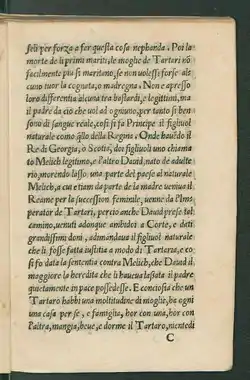 seli per forza a far questa cosa nephanda. Poi la
morte de li primi mariti, le moglie de Tartari nõ
facilmente piu si maritano, se non uolesse forse al
cuno tuor la cognata, o madregna. Non e apresso
loro differentia alcuna tra bastardi, e legittimi, ma
il padre da ciò che uol ad ogniuno, per tanto si ben
sono di sangue reale, cosi si fa Principe il figliuol
naturale como q̃llo della Regina. Onde hauẽdo il
Re di Georgia, o Scotia, doi figliuoli uno chiama
to Melich legitimo, e l'altro Dauid, nato de adulte
rio, morendo lasso una parte del paese al naturale
Melich, a cui etiam da parte de la madre ueniua il
Reame per la succession feminile, uenne da l'Im
perator de Tartari, perciò anche Dauid prese tal
camino, uenuti adonque ambidoi a Corte, e dati
grandissimi doni, adimandaua il figliuol naturale
che li fosse fatta iustitia a modo di Tartaria, e co
si fo data la sententia contra Melich, che Dauid il
maggiore la heredita che li haueua lassata il padre
quetamente in pace possedesse. E conciosia che un
Tartaro habbi una moltitudine di moglie, ha ogni
una casa per se, e famiglia, hor con una, hor con
l'altra, mangia, beue, e dorme il Tartaro, niente di
C